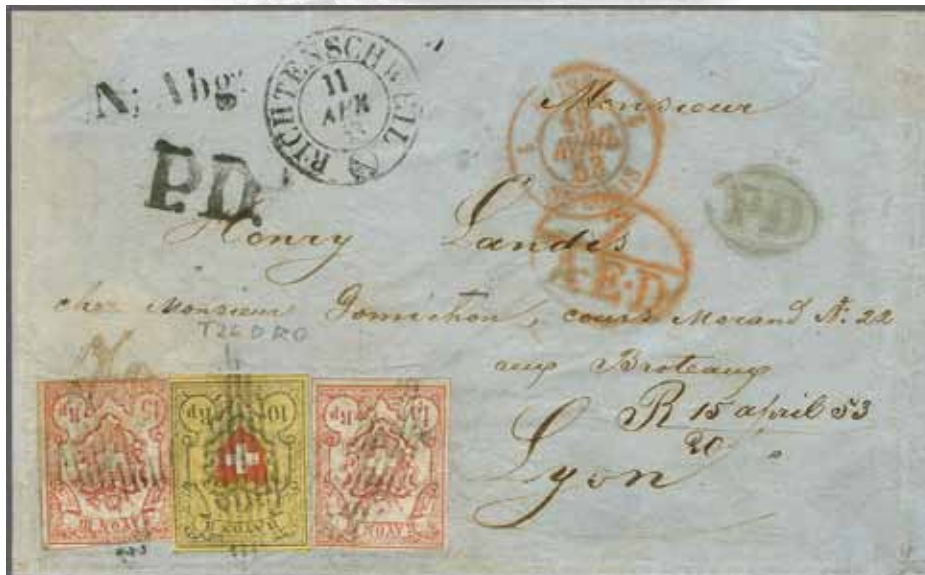 N: Abg:
RICHTENSCHWEIL
11
APR
P.D.
AVRIL
53
P.D
A.E.D.
Monsieur
Henry Landis
chez Monsieur Gonichon, cours Morand N: 22
aux Broteaux
Lyon
R 15 april 53
20
T26 D RO
15 Rp
RAYON III
10 Rp
RAYON II
15 Rp
RAYON III